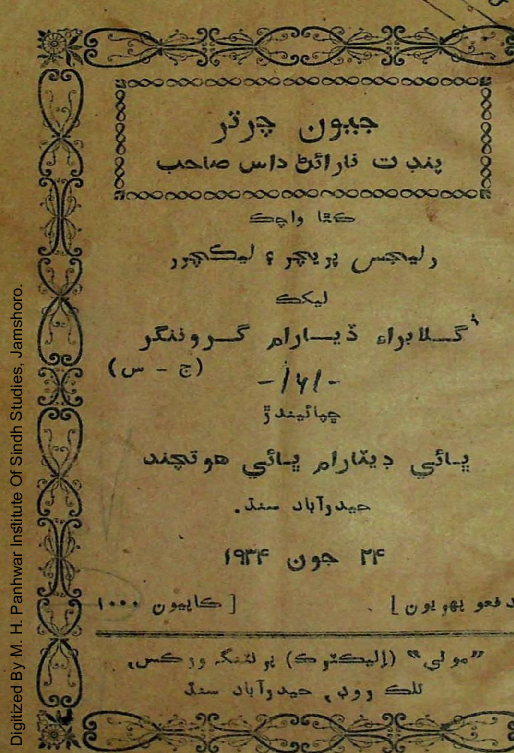 جيون چرتر
پنڊت نارائڻ داس صاحب
ڪٿا واچڪ
رليجس پريچر ۽ ليڪچرر
ليکڪ
گـلابراءِ ڏيـارام گـروننگر
(ج – س)
-/٦/-
ڇپائيندڙ
ڀائي ديٿارام ڀائي هوتچند
حيدرآباد سنڌ.
٢۴ جون ١٩٣۴
دفعو پهريون]
[ڪاپيون ١٠٠٠
”موتي“ (اليڪٽرڪ) پرنٽنگ ورڪس،
تلڪ روڊ، حيدرآباد سنڌ
Digitized By M. H. Panhwar Institute Of Sindh Studies, Jamshoro.